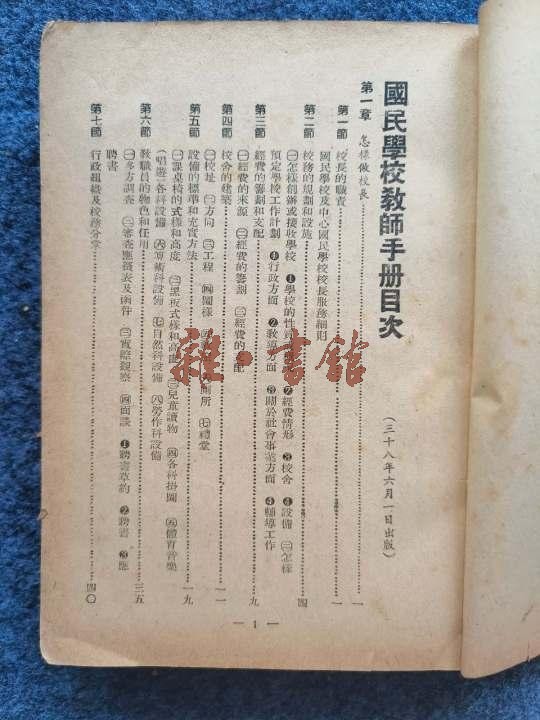 國民學校教師手册目次
（三十八年六月一日出版）
第一章 怎樣做校長………一
第一節 校長的職責………一
國民學校及中心國民學校校長服務細則
第二節 校務的規劃和設施………四
㊀怎樣創辦或接收學校 ❶學校的性質 ❷經費情形 ❸校舍 ❹設備 ㊁怎樣
預定學校工作計劃 ❶行政方面 ❷教導方面 ❸關於社會事業方面 ❹輔導工作
第三節 經費的籌劃和支配………九
㊀經費的來源 ㊁經費的籌劃 ㊂經費的支配
第四節 校舍的建築………一一
㊀校址 ㊁方向 ㊂工程 ㊃圖樣 ㊅廁所 ㊆禮堂
第五節 設備的標準和充實方法………一九
㊀課桌椅的式樣和高度 ㊁黑板式樣和 ㊂兒童讀物 ㊃各科掛圖 ㊄體育音樂
（唱遊）各科設備 ㊅算術科設備 ㊆自然科設備 ㊇勞作科設備
第六節 教職員的物色和任用………三五
㊀多方調查 ㊁審查應徵表及函件 ㊂實際觀察 ㊃面談 ❶聘書草約 ❷聘書 ❸應
聘書
第七節 行政組織及校務分掌………四〇
— 1 —
雜·書館